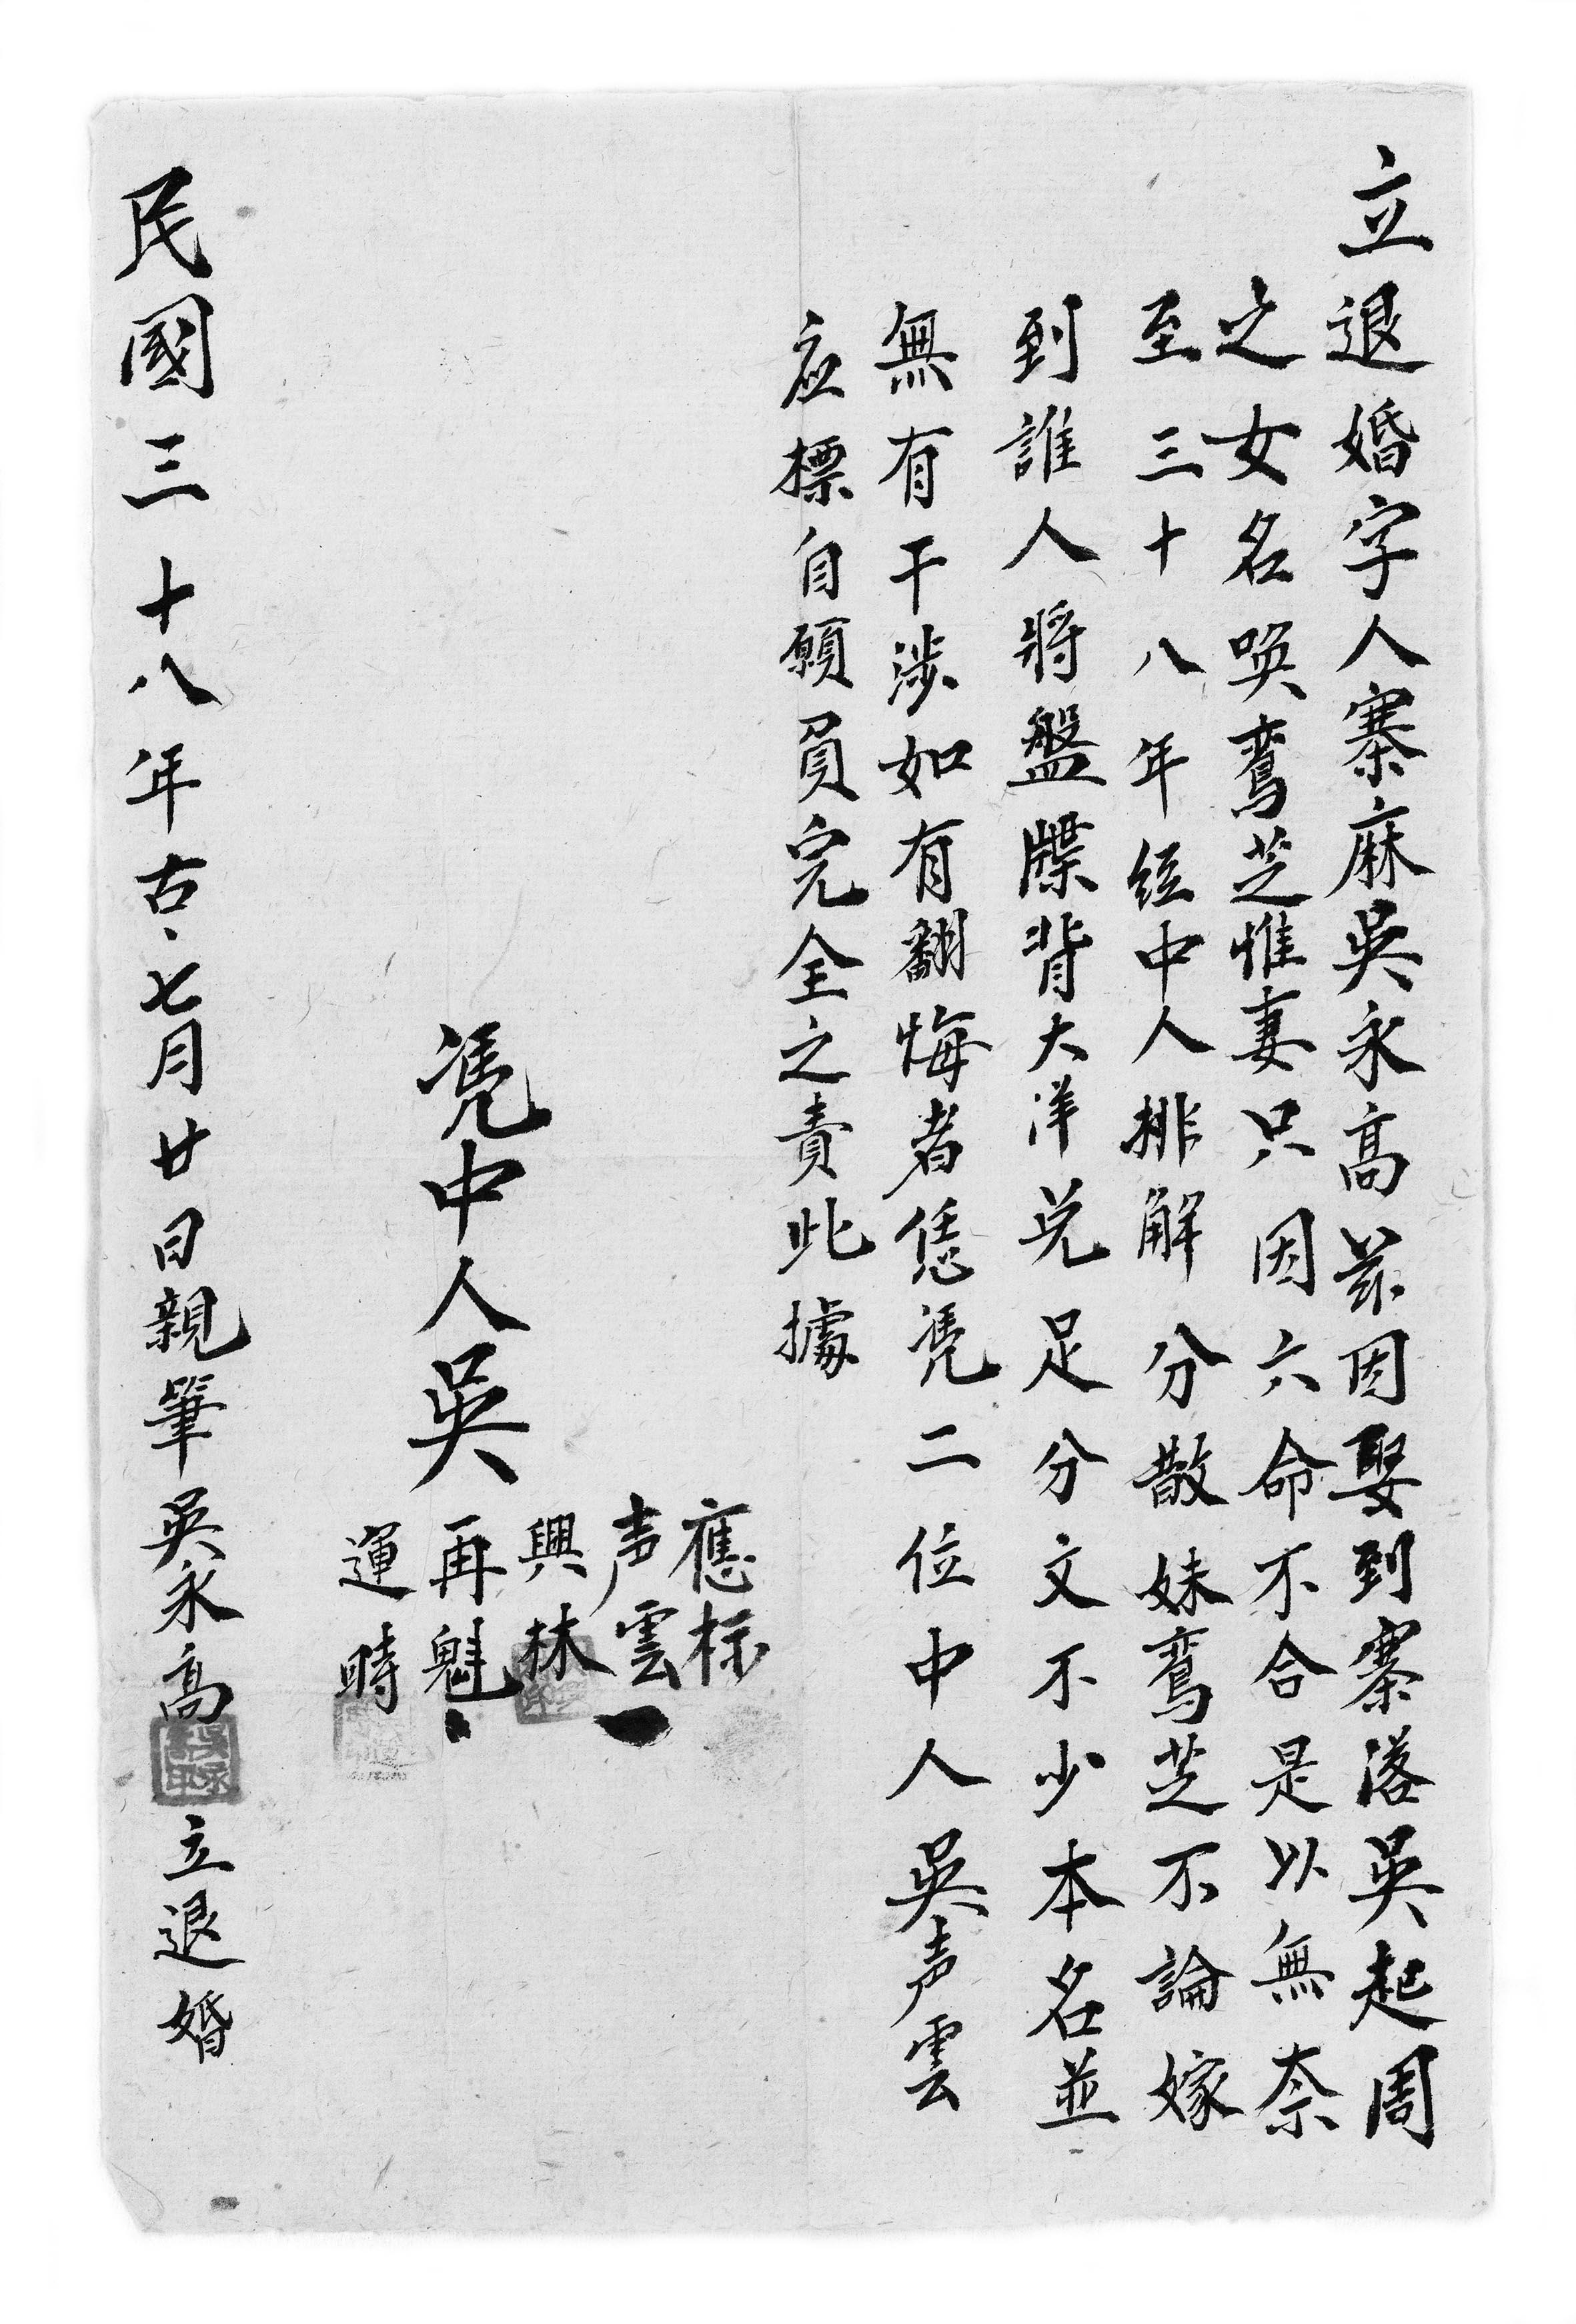 立退婚字人寨麻吳永高茲因娶到寨落吳起周
之女名喚鸾芝惟妻只因六命不合是以無奈
至三十八年经中人排解分散妹鸾芝不論嫁
到誰人將盤牒背大洋兑足分文不少本名並
無有干涉如有翻悔者恁凴二位中人吳声雲
应標自願負完全之責此據
凴中人吳
應标
声雲
興林
再魁
運時
民國三十八年古七月廿日親筆吳永高立退婚